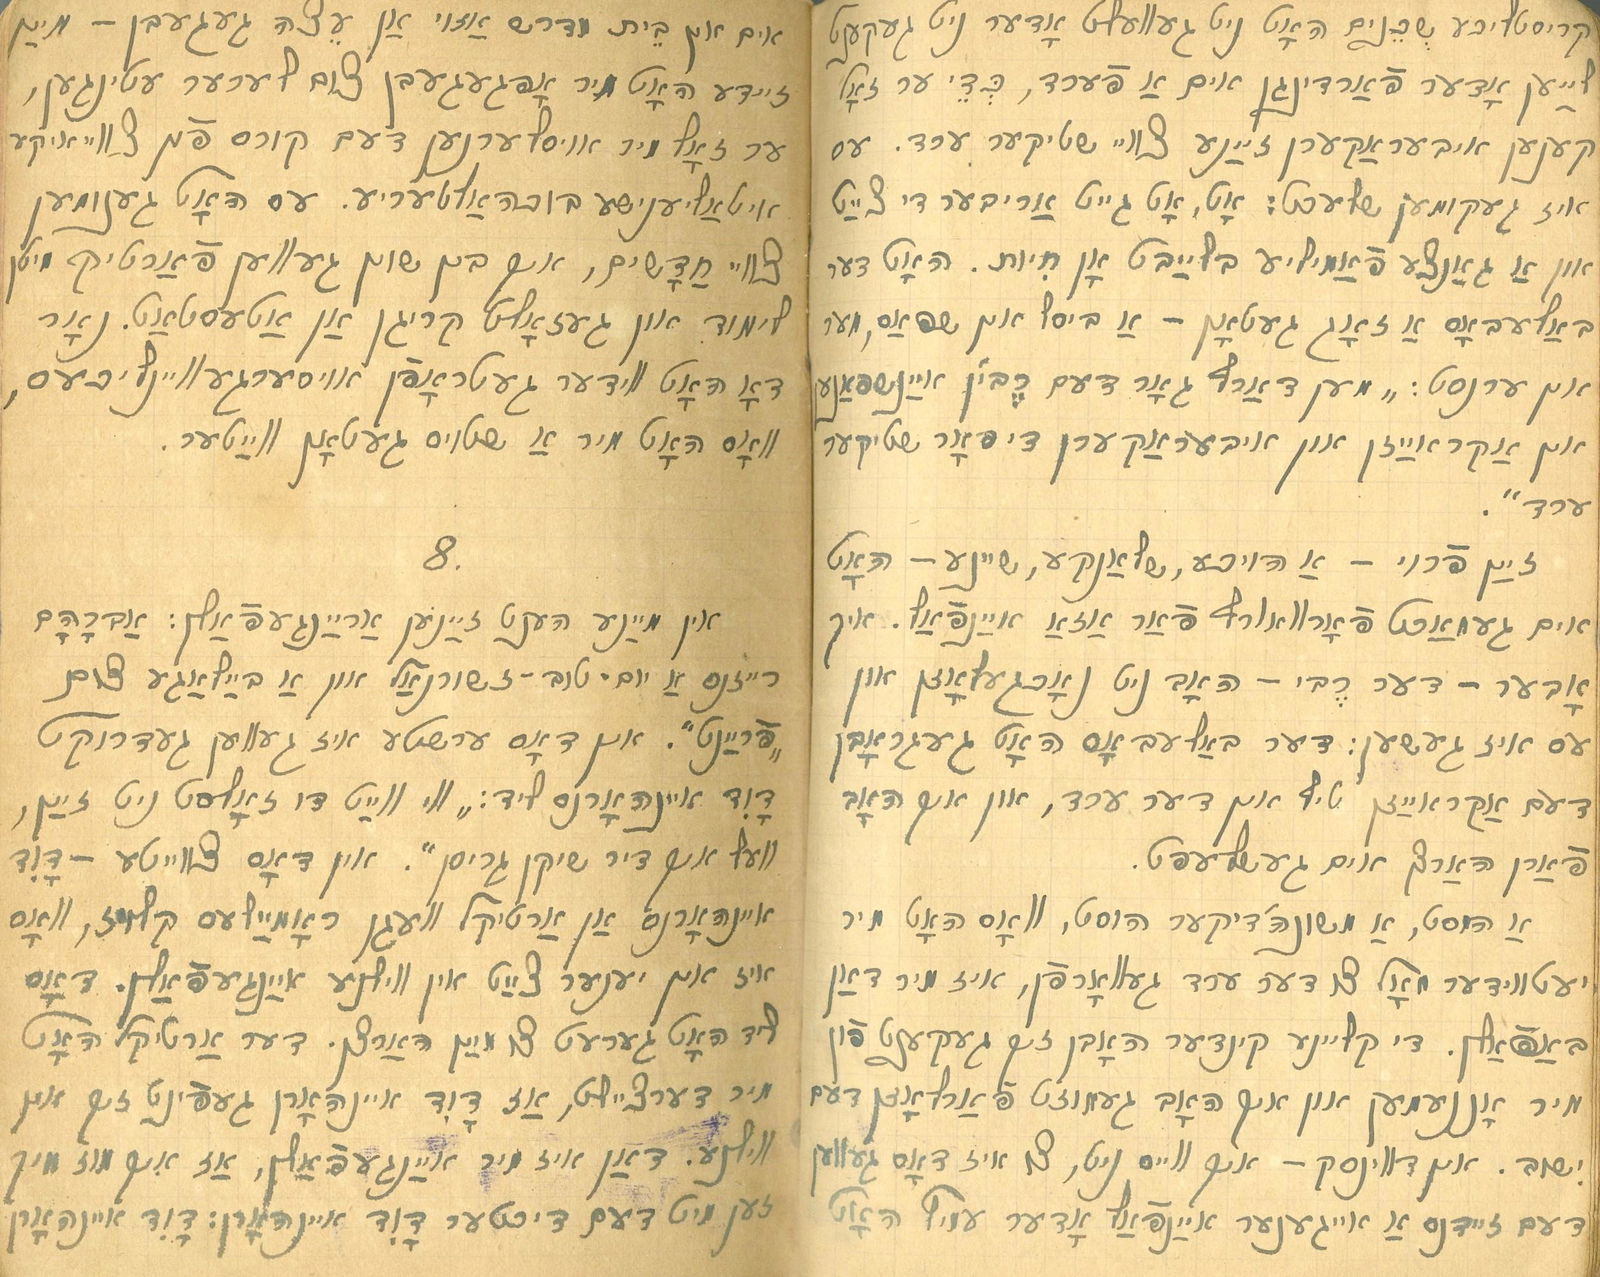 קריסטליכע שְׁכֵנים האָט ניט געוואָלט אָדער ניט געקענט
לײַען אָדער פֿאַרדינגן אים אַ פֿערד, כְּדֵי ער זאָל
קענען איבעראַקערן זײַנע צוויי שטיקער ערד. עס
איז געקומען שלעכט: אָט, אָט גייט אַריבער די צײַט
און אַ גאַנצע פֿאַמיליע בלײַבט אָן חִיות. האָט דער
באַלעבאָס אַ זאָג געטאָן – אַ ביסל אין שפּאַס, מער
אין ערנסט: „מען דאַרף גאָר דעם רֶבין אײַנשפּאַנען
אין אַקראײַזן און איבעראַקערן די פּאָר שטיקער
ערד".
זײַן פֿרוי – אַ הויכע, שלאַנקע, שיינע – האָט
אים געמאַכט פֿאָרוואורף פֿאַר אַזאַ אײַנפֿאַל. איך
אָבער – דער רֶבי – האָב ניט נאָכגעלאָזן און
עס איז געשען: דער באַלעבאָס האָט געגראָבן
דעם אַקראײַזן טיף אין דער ערד, און איך האָב
פֿאַרן האַרץ אים געשלעפּט.
אַ הוסט, אַ משונה׳דיקער הוסט, וואָס האָט מיר
יעטווידער מאָל צו דער ערד געוואָרפֿן, איז מיר דאַן
באַפֿאַלן. די קליינע קינדער האָבן זיך געקענט פֿון
מיר אָננעמען און איך האָב געמוזט פֿאַרלאָזן דעם
ישוב. אין דווינסק – איך ווייס ניט, צו איז דאָס געווען
דעם זיידנס אַ אייגענער אײַנפֿאַל אָדער עמיץ האָט
אים אין בֵּית מדרש אַזוי אַן עֵצה געגעבן – מײַן
זיידע האָט מיר אָפּגעגעבן צום לערער עטינגען,
ער זאָל מיר אויסלערנען דעם קורס פֿון צווייאיקע
איטאַליענישע בוכהאַלטעריע. עס האָט גענומען
צוויי חַדָשים, איך בין שוין געווען פֿאַרטיק מיטן
לימוד און געזאָלט קריגן אַן אַטעסטאַט. נאָר
דאָ האָט ווידער געטראָפֿן אויסערגעוויינליכעס,
וואָס האָט מיר אַ שטויס געטאָן ווײַטער.
8.
אין מײַנע הענט זײַנען אַרײַנגעפֿאַלן: אַבֿרָהָם
רייזנס אַ יום-טוב-זשורנאַל און אַ בײַלאַגע צום
„פֿרײַנט". אין דאָס ערשטע איז געווען געדרוקט
דָוִד איינהאָרנס ליד: „ווי ווײַט דו זאָלסט ניט זײַן,
וועל איך דיר שיקן גריסן". אין דאָס צווייטע – דָוִד
איינהאָרנס אַן אַרטיקל וועגן ראָמײַלעס קלויז, וואָס
איז אין יענער צײַט אין ווילנע אײַנגעפֿאַלן. דאָס
ליד האָט גערעט צו מײַן האַרץ. דער אַרטיקל האָט
מיר דערציילט, אַז דָוִד איינהאָרן געפֿינט זיך אין
ווילנע. דאַן איז מיר אײַנגעפֿאַלן, אַז איך מוז מיך
זען מיט דעם דיכטער דָוִד איינהאָרן: דָוִד איינהאָרן